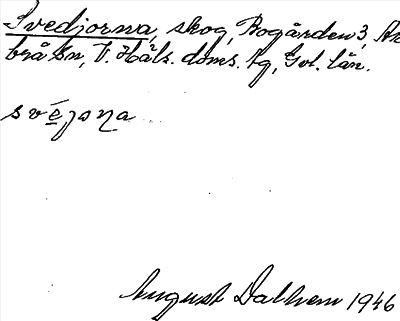 Svedjorna, skog, Bogården 3, An
brå sn, V. Hals. doms. tg, Gvl. län.
svéjoṇa
August Dalhem 1946